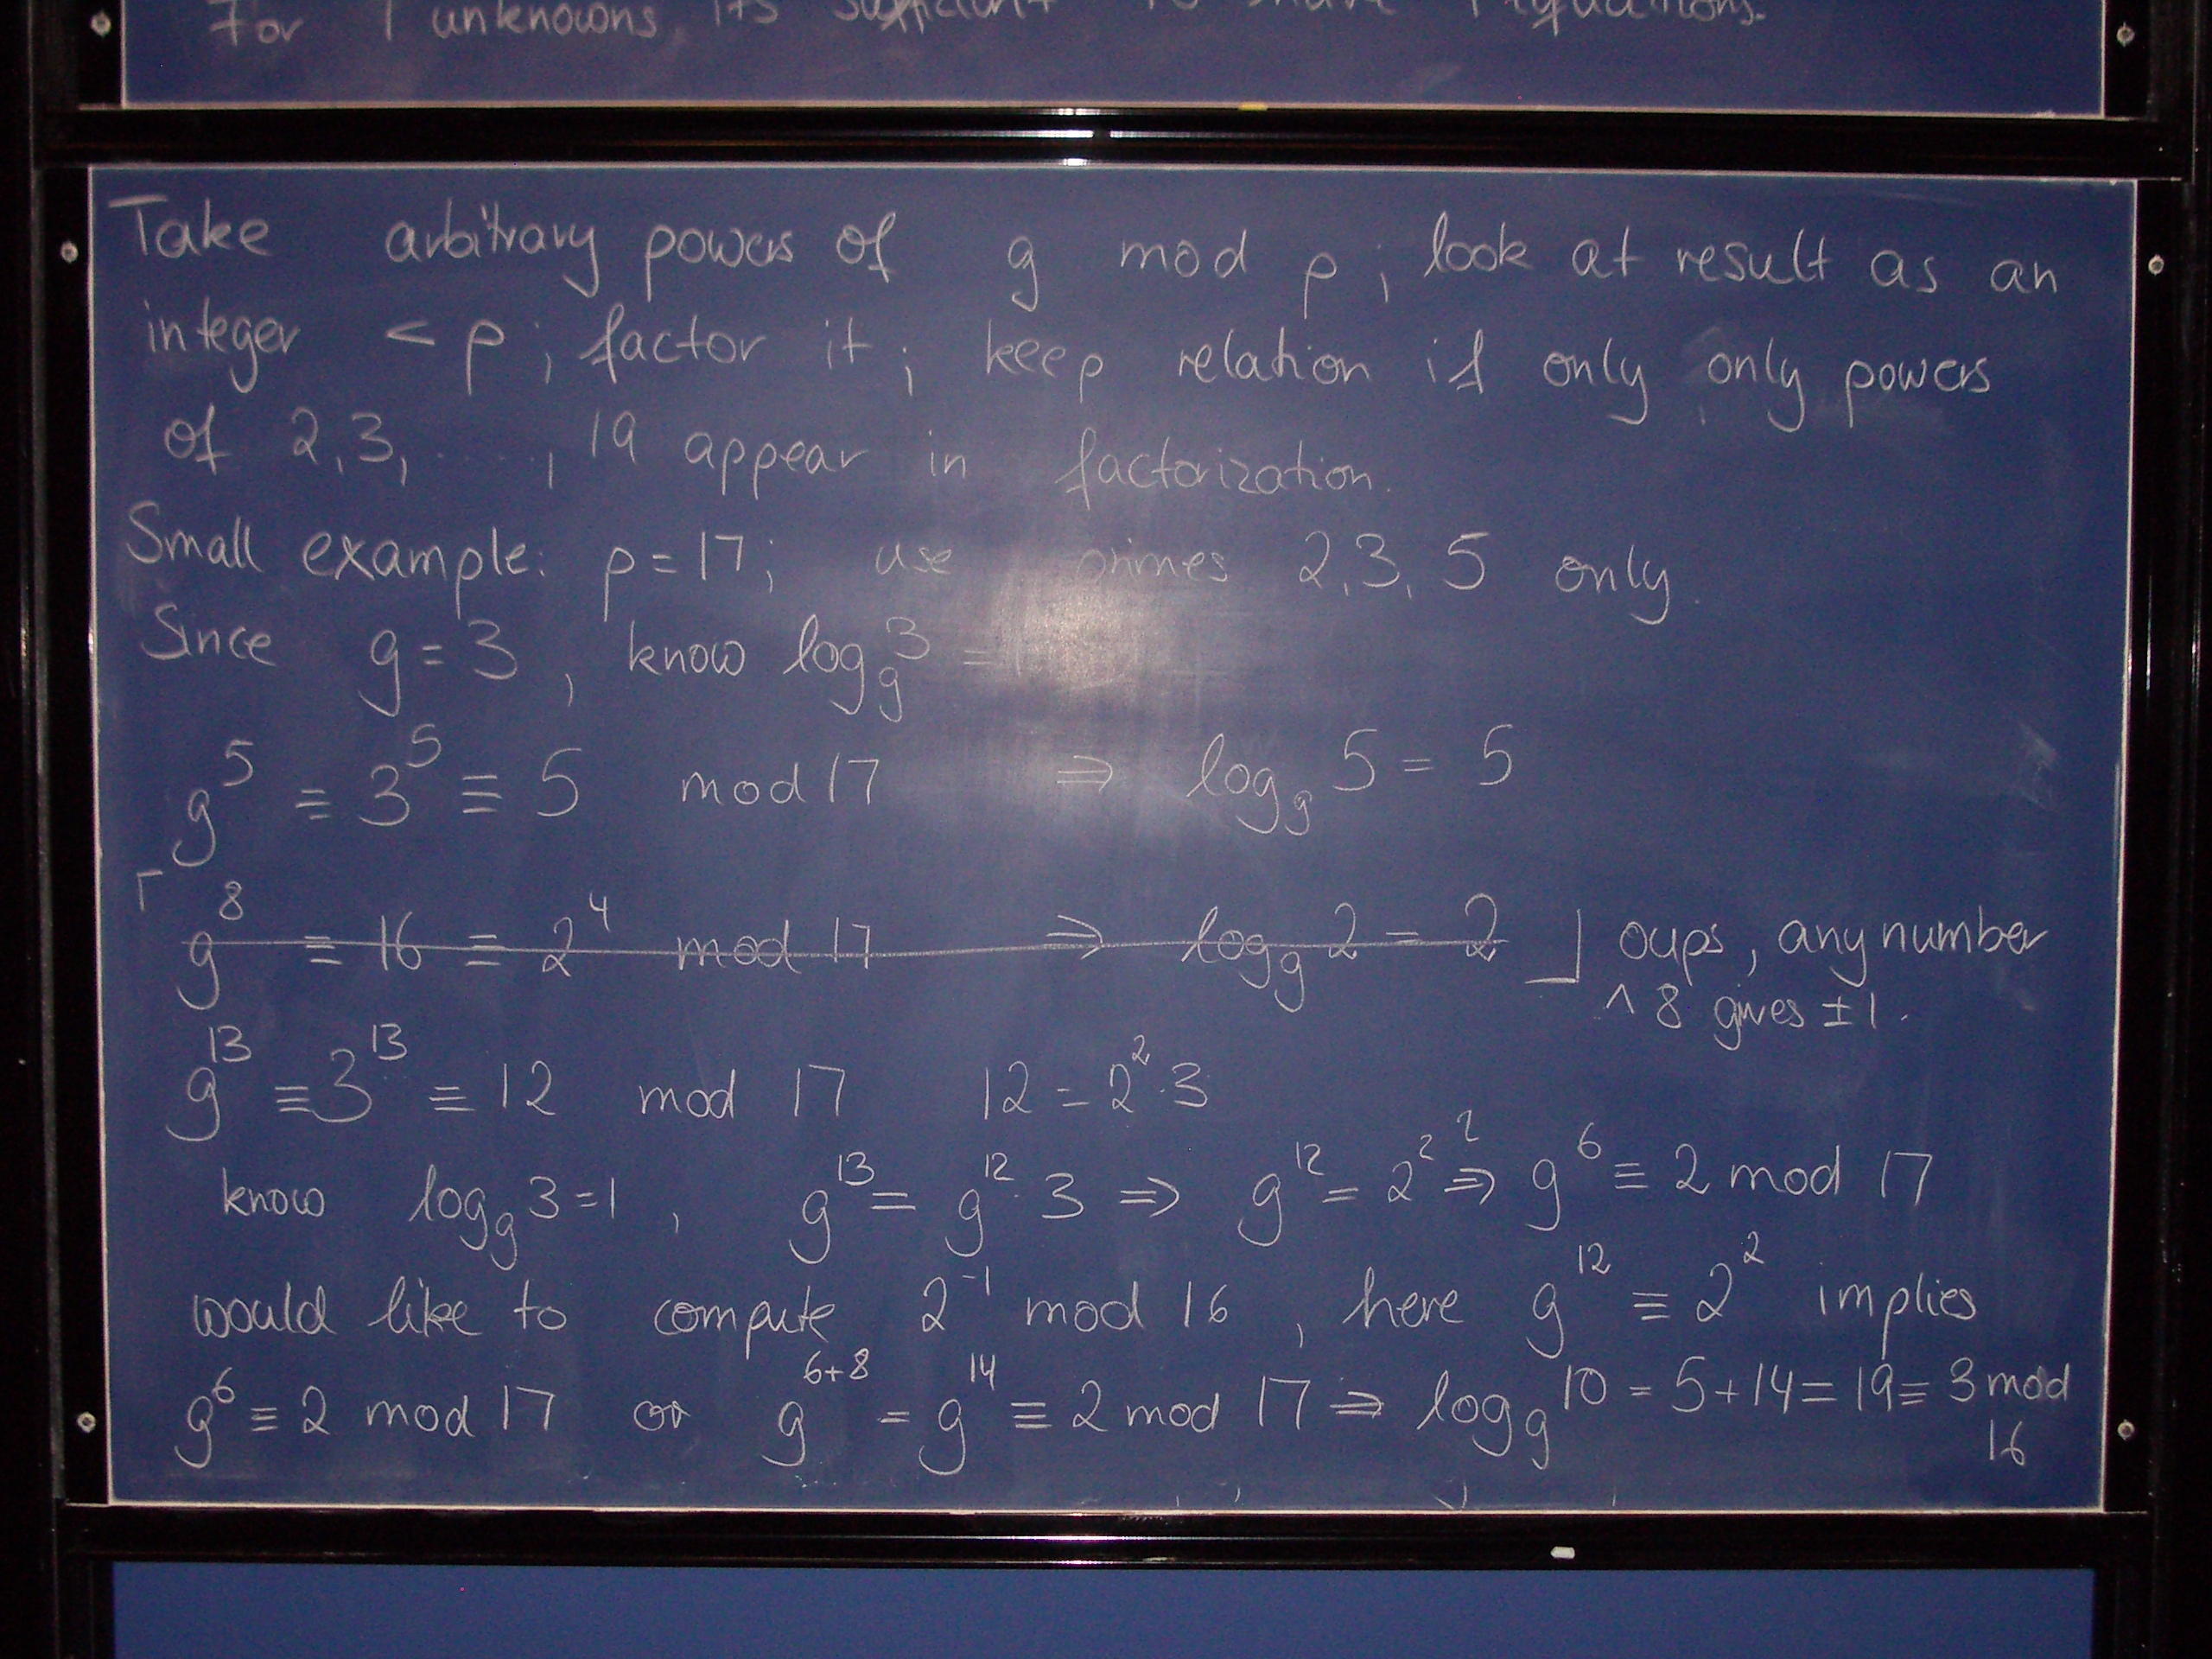 For 7 unknowns, it's sufficient to have 7 equations.
Take arbitrary powers of g mod p; look at result as an
integer < p; factor it; keep relation if only only powers
of 2,3, ....., 19 appear in factorization.
Small example: p=17; use primes 2,3,5 only.
Since g=3, know log_g 3 = 1
g^5 ≡ 3^5 ≡ 5 mod 17 ⇒ log_g 5 = 5
⌈ g^8 ≡ 16 ≡ 2^4 mod 17 ⇒ log_g 2 = 2 ⌋ oups, any number
^8 gives ±1.
g^13 ≡ 3^13 ≡ 12 mod 17 12 = 2^2·3
know log_g 3=1, g^13 = g^12·3 ⇒ g^12 = 2^2 ?⇒ g^6 ≡ 2 mod 17
would like to compute 2^-1 mod 16, here g^12 ≡ 2^2 implies
g^6 ≡ 2 mod 17 or g^6+8 = g^14 ≡ 2 mod 17 ⇒ log_g 10 = 5+14=19≡ 3 mod
16